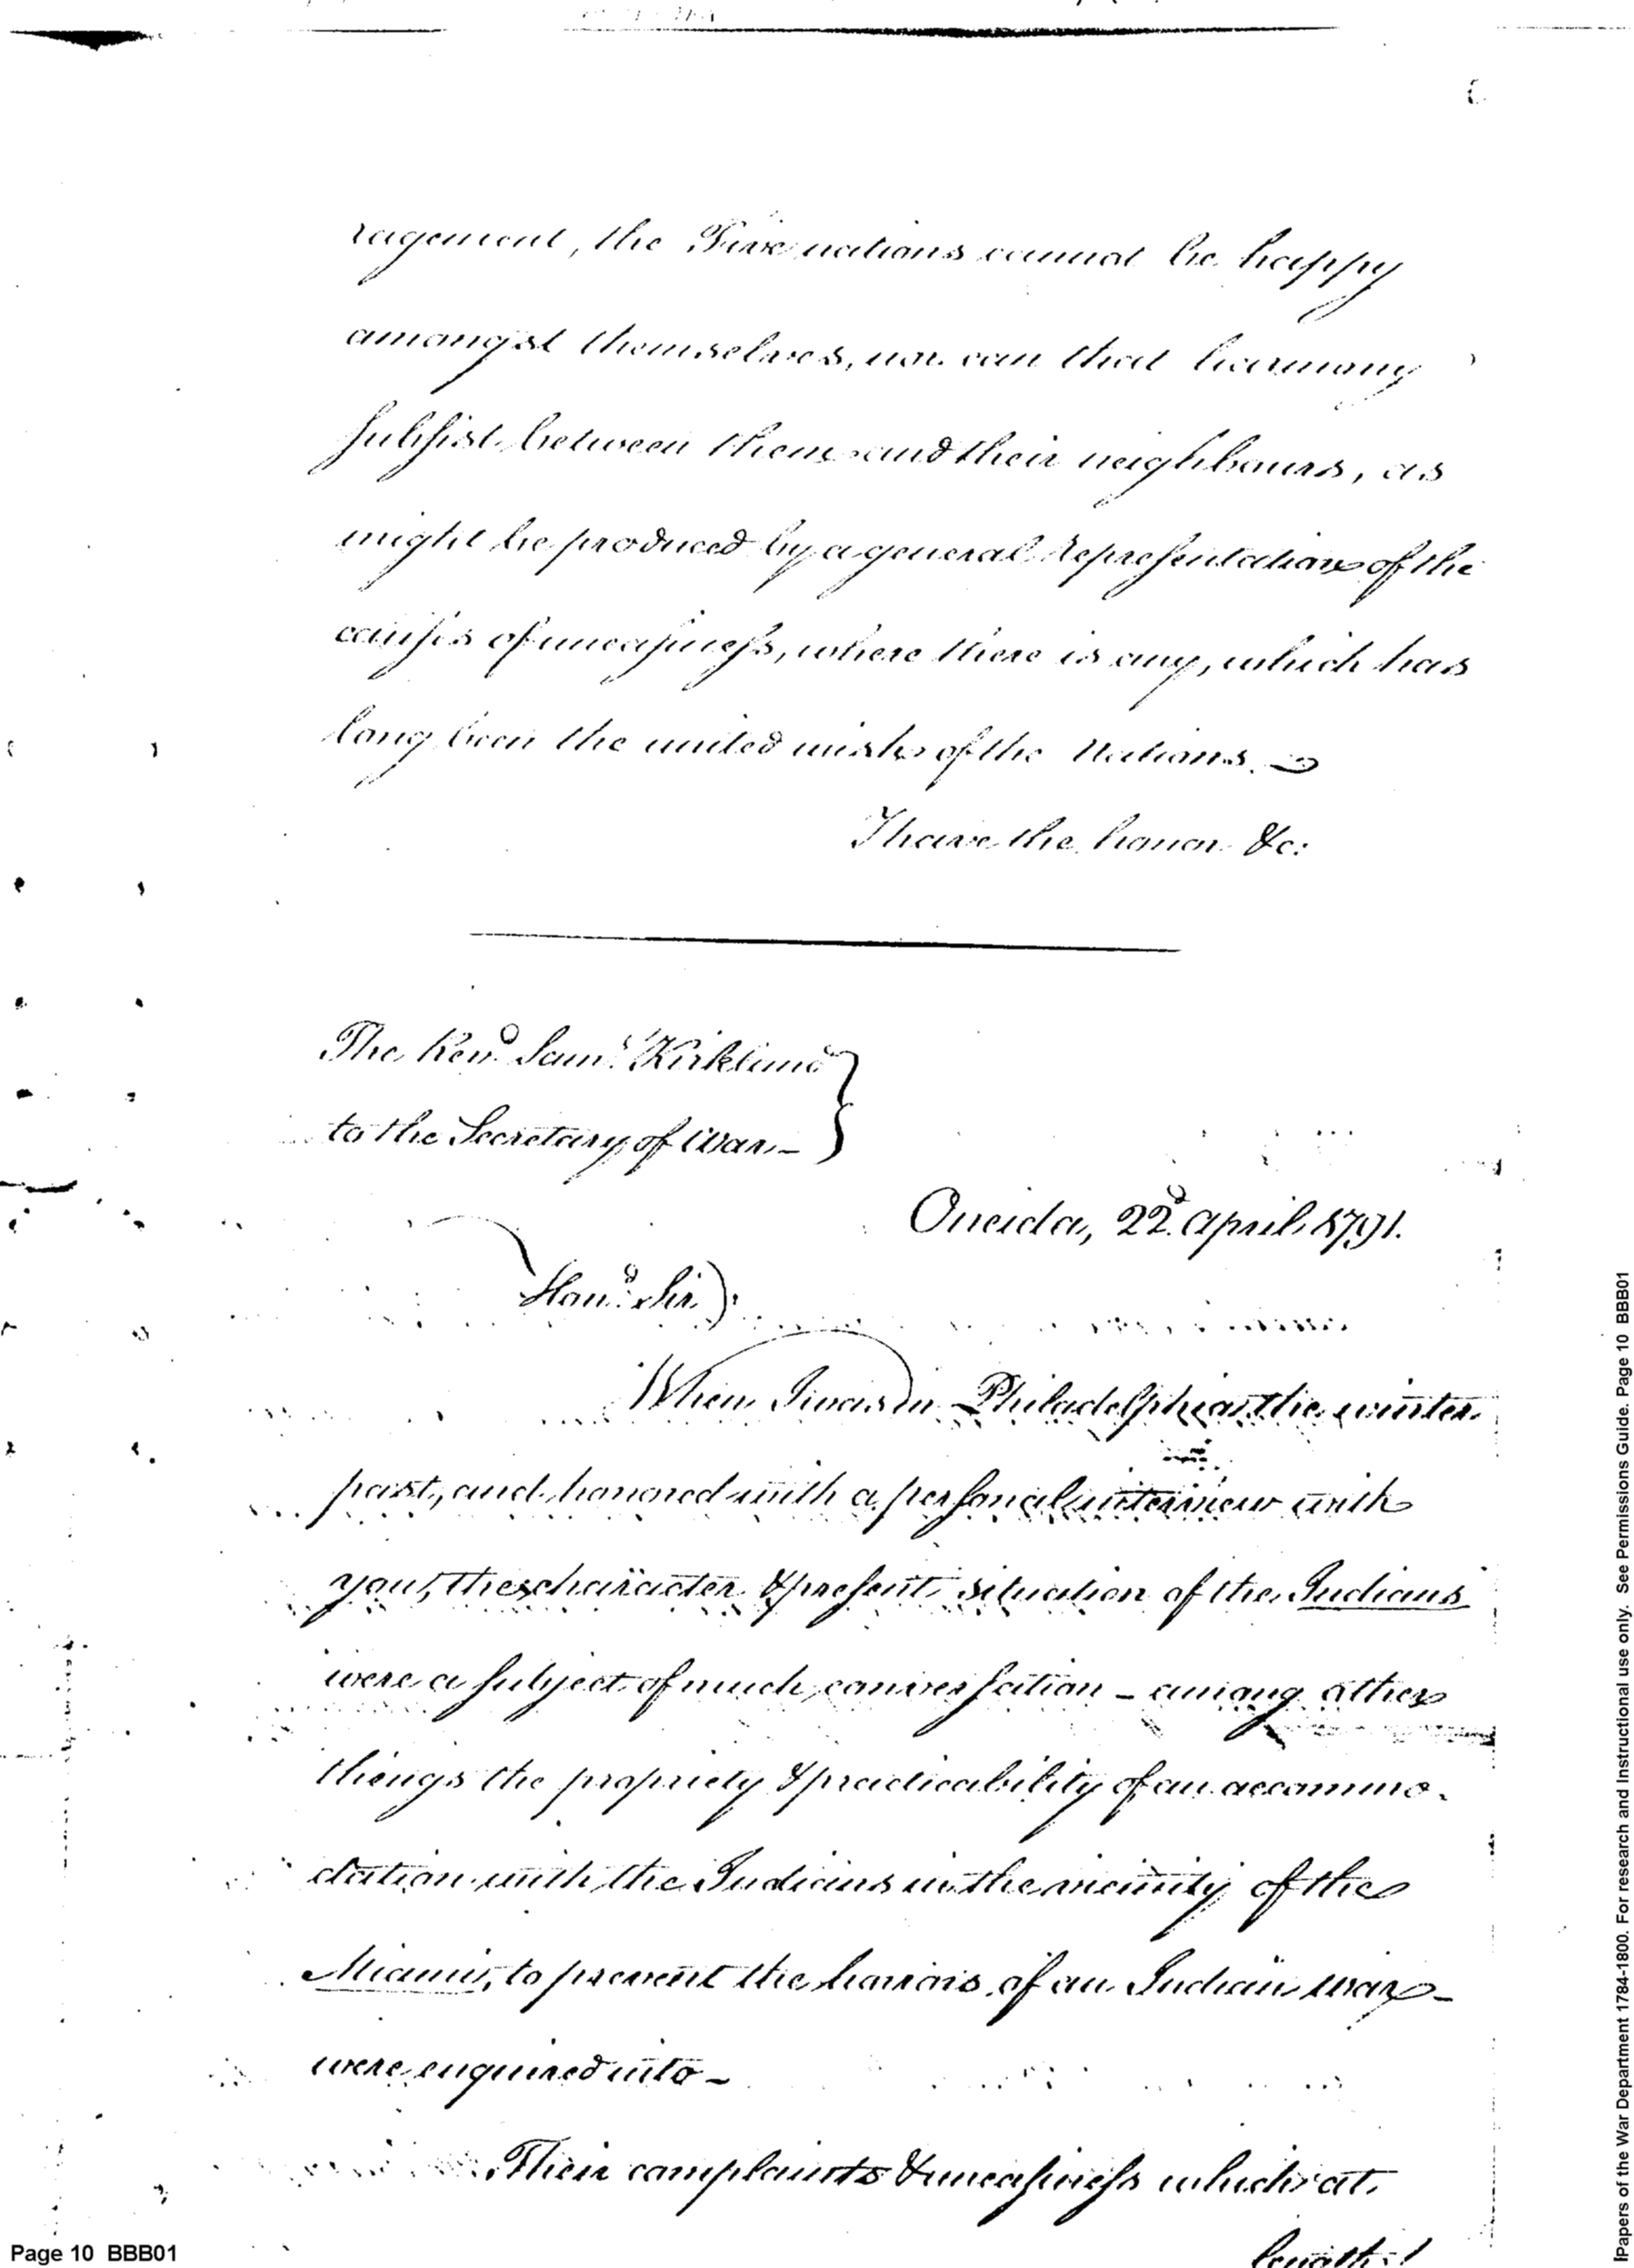 ragement, the Five nations cannot be happy
amongst themselves, nor can that harmony
subsist between them and their neighbours, as
might be produced by a general representation of the
causes of uneasiness, where there is any, which has
long been the united wish of the Nations.
I have the honor &c:
The Revd. Saml. Kirkland
to the Secretary of War—
Oneida, 22d. April 1791.
Hond. Sir,
When I was in Philadelphia the winter
past, and honored with a personal interview with
you, the character & present situation of the Indians
were a subject of much conversation – among other
things the propriety & practicability of an accommo-
dation with the Indians in the vicinity of the
Miamis, to prevent the horrors of an Indian war –
were enquired into –
Their complaints & uneasiness which at
length
Page 10 BBB01
Papers of the War Department 1784-1800. For research and Instructional use only. See Permissions Guide. Page 10 BBB01